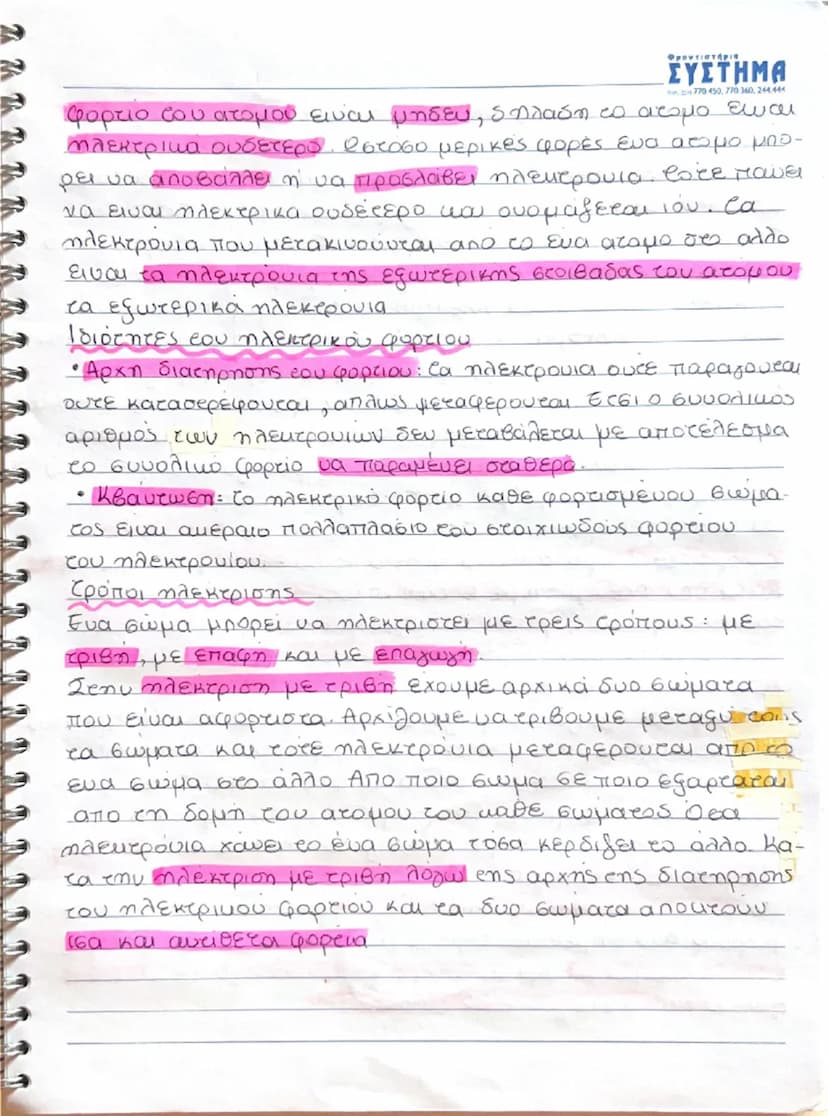 Φροντιστήρια
ΣΥΣΤΗΜΑ
770 450, 770 360, 244 444
φορτίο του ατομού ειναι μηδεν, δηλαδη το ατομο ειναι
ηλεκτρικα ουδετερο. Ωστοσο μερικές φορές ενα ατομο μπο-
ρει να αποβάλλει ή να προσλάβει ηλεκτρονια. Τότε παυει
να ειναι ηλεκτρικα ουδέτερο και ονομάζεται ιόν. Τα
ηλεκτρόνια που μετακινούνται απο το ένα ατομο στο αλλο
ειναι τα ηλεκτρόνια της εξωτερικης στοιβαδας του ατόμου
τα εξωτερικά ηλεκτρονια
Ιδιότητες του ηλεκτρικόυ φορτιου
• Αρχη διατηρησης του φορτιου: Τα ηλεκτρονια ουτε παραγονται
ουτε καταστρέφονται, απλως μεταφερονται Ετσι ο συνολικός
αριθμός των ηλεκτρονιων δεν μεταβάλεται με αποτέλεσμα
το συνολικο φορτίο να παραμένει σταθερό.
• Κβάντωση: το ηλεκτρικό φορτιο καθε φορτισμένου σώμα-
τος ειναι ακέραιο πολλαπλάσιο του στοιχιωδούς φορτιου
του ηλεκτρονίου.
Τρόποι ηλεκτρισης
Ενα σώμα μπορεί να ηλεκτριστεί με τρεις τρόπους: με
τριβή, με επαφη και με επαγωγή.
Στην ηλεκτριση με τριβή έχουμε αρχικά δυο σώματα
που είναι αφορτιστα. Αρχίθουμε να τριβουμε μεταξύ τους
τα σωματα και τότε ηλεκτρονια μεταφερονται απο το
ενα σωμα στο άλλο Απο ποιο σωμα σε ποιο εξαρταται
απο τη δομή του ατομου του καθε σωματος Όσα
ηλεκτρόνια χάνει το ένα σωμα τοσα κερδιζει το άλλο. Κα-
τα την ηλέκτριση με τριβή λόγω της αρχής της διατηρησης
του ηλεκτρικού φορτιου και τα δυο σωματα αποκτούν
ισα και αντίθετα φορτια